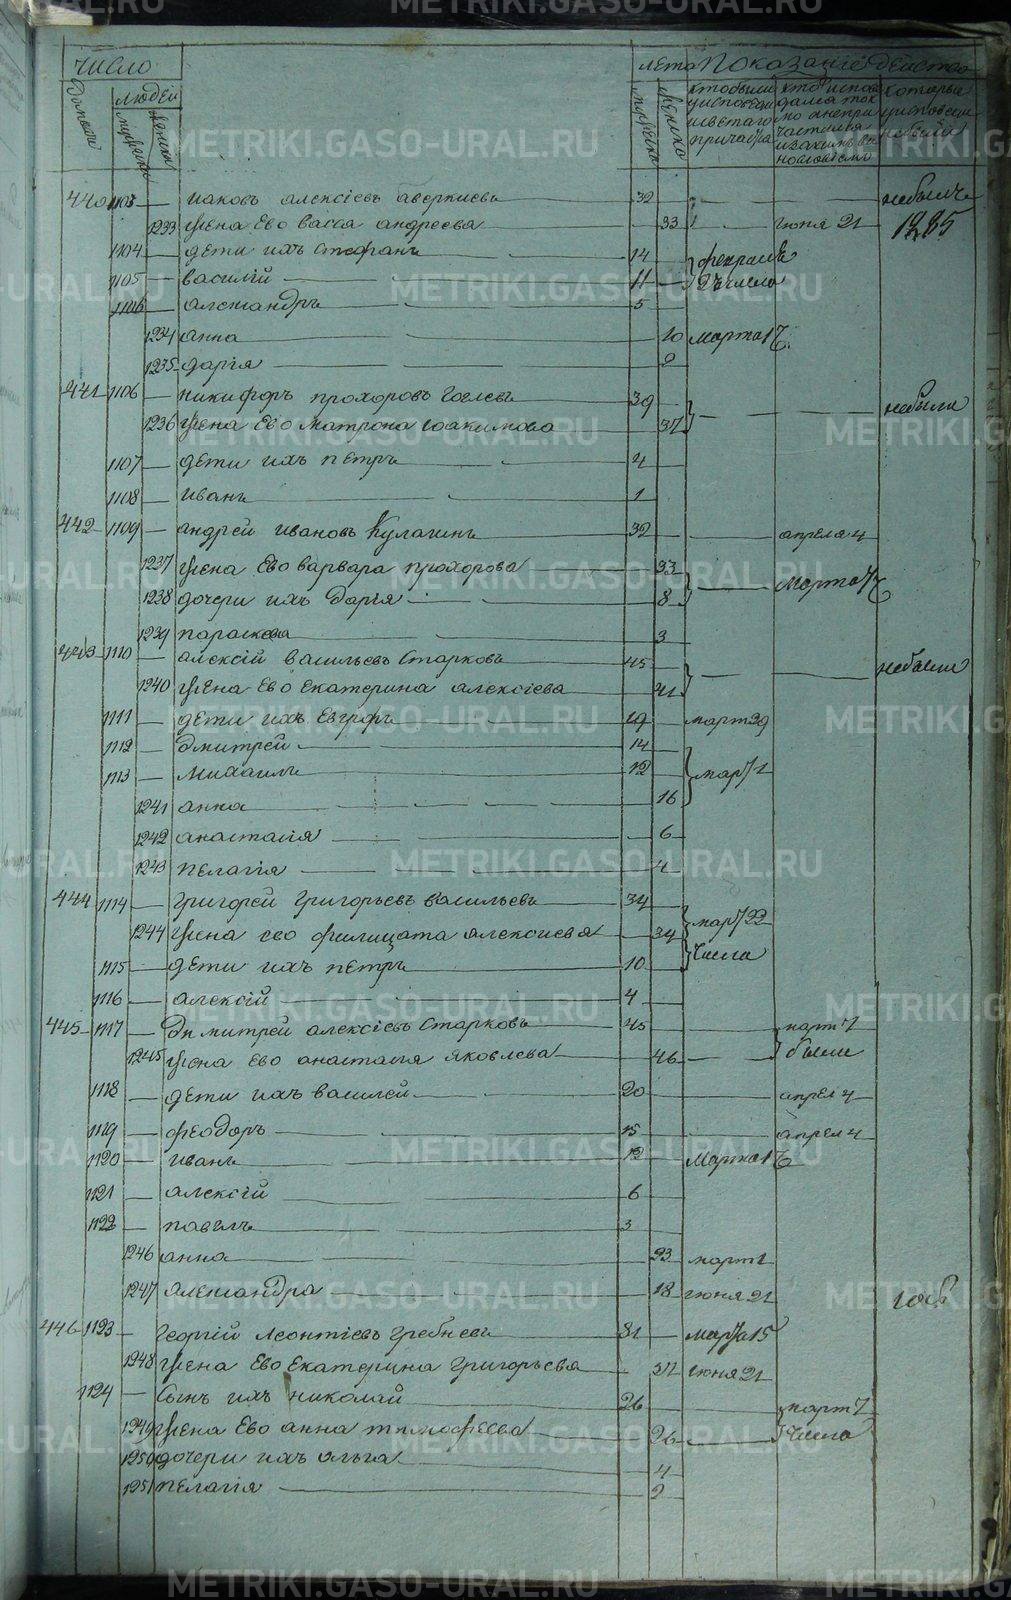 число лета Показанiе действо
домовъ людей мужска женска мужска женско кто были у исповеди и светаго причастiя
440 1103 иаковъ алексiевъ аверкиевъ 32 небылъ
1233 жена Ево васса андреева 33 iюня 21 1835
1104 дети ихъ Стефанъ 14 февраля
1105 василiй 11 числа
1106 александръ 5
1234 анна 10 марта 17
1235 дарiя 2
441 1106 никифоръ прохоровъ 39 небыли
1236 жена Ево матрона иоакимова 37
1107 дети ихъ петръ 4
1108 иванъ 1
442 1109 андрей ивановъ Кулагинъ 32 апреля 4
1237 жена Ево варвара прохорова 33 марта 17
1238 дочери ихъ дарiя 8
1239 параскева 3
443 1110 алексiй васильевъ Старковъ 45 небыли
1240 жена Ево Екатерина алексiева 41
1111 дети ихъ Евграфъ 19 март 29
1112 дмитрей 14
1113 михаилъ 12 мар 1
1241 анна 16
1242 анастасiя 6
1243 пелагiя 4
444 1114 григорей григорьевъ васильевъ 34 мар 22
1244 жена ево филицата алексиева 34 числа
1115 дети ихъ петръ 10
1116 алексiй 4
445 1117 дмитрей алексiевъ Старковъ 45 март 7
1245 жена Ево анастасiя яковлева 46 были
1118 дети ихъ василей 20 апрел 4
1119 феодоръ 15 апрел 4
1120 иванъ 12 марта 17
1121 алексiй 6
1122 павелъ 3
1246 анна 23 март 1
1247 александра 18 iюня 21
446 1123 георгiй леонтiевъ гребневъ 51 марта 15
1248 жена Ево Екатерина григорьева 51 iюня 21
1124 Сынъ ихъ николай 26 март 7
1249 жена Ево анна тимофеева 26 числа
1250 дочери ихъ ольга 4
1251 пелагiя 2
METRIKI.GASO-URAL.RU